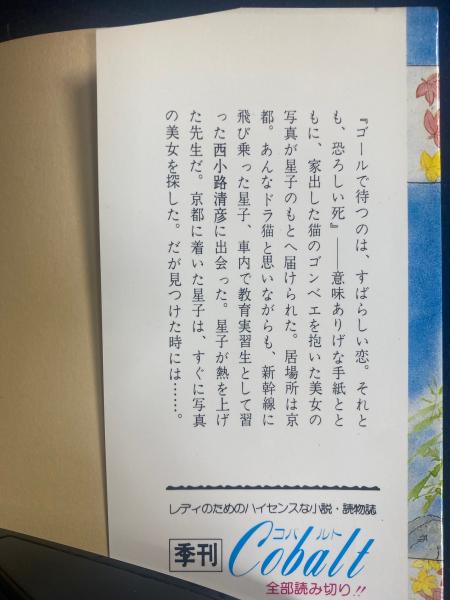 『ゴールで待つのは、すばらしい恋。それと
も、恐ろしい死』――意味ありげな手紙とと
もに、家出した猫のゴンベエを抱いた美女の
写真が星子のもとへ届けられた。居場所は京
都。あんなドラ猫と思いながらも、新幹線に
飛び乗った星子、車内で教育実習生として習
った西小路清彦に出会った。星子が熱を上げ
た先生だ。京都に着いた星子は、すぐに写真
の美女を探した。だが見つけた時には……。
レディのためのハイセンスな小説・読物誌
季刊
コバルト
Cobalt
全部読み切り!!